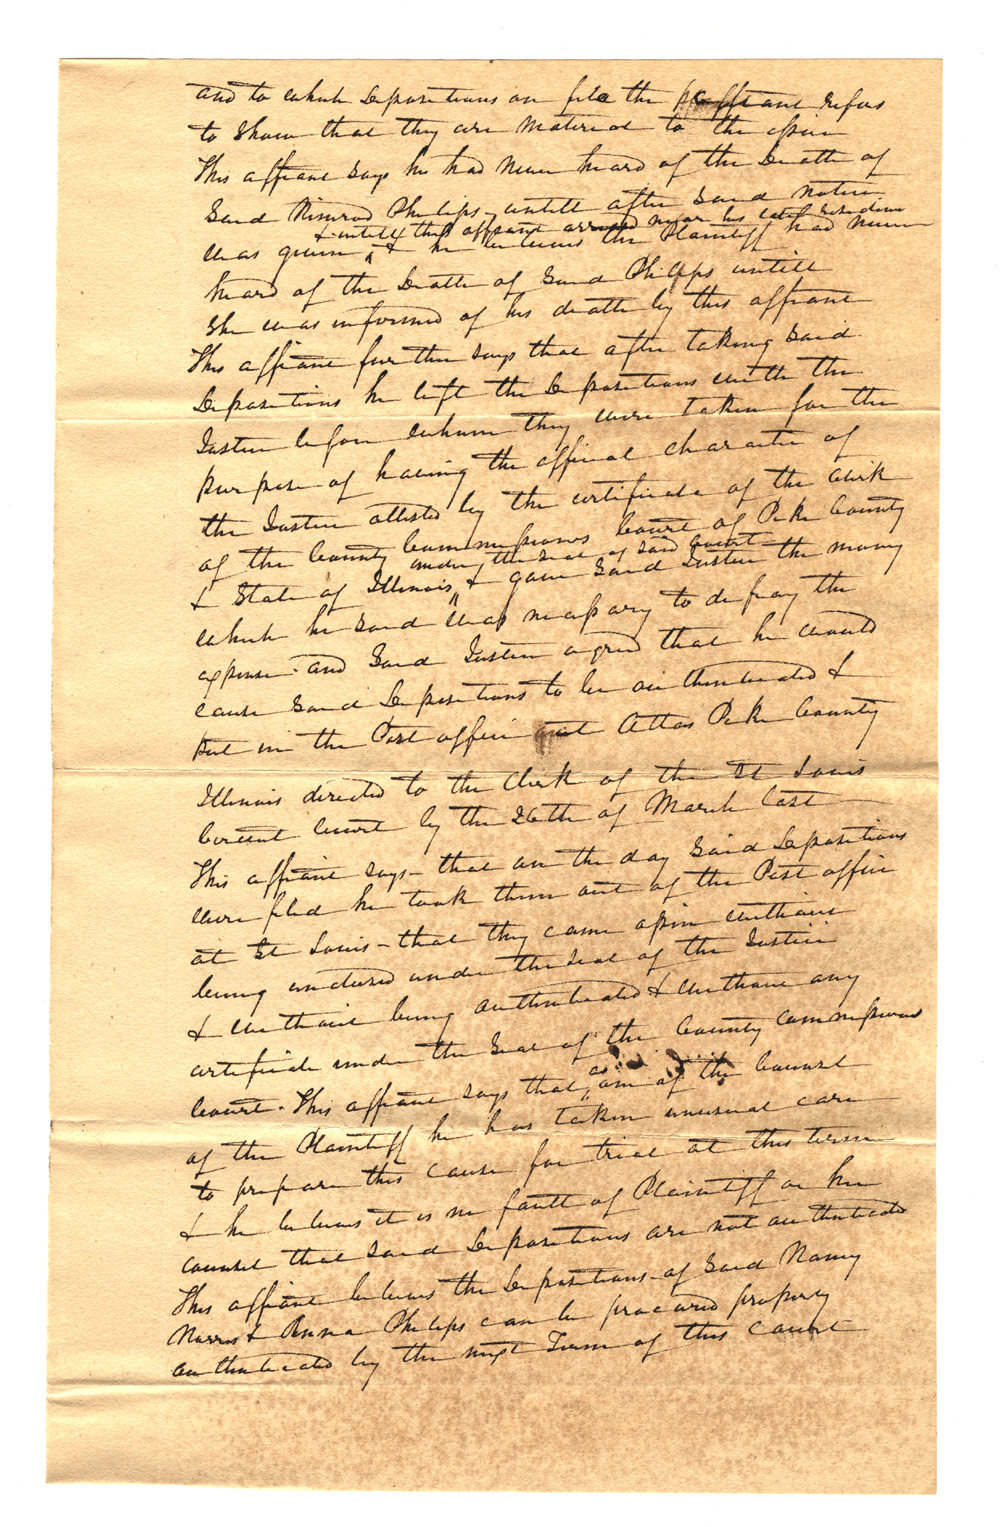 and to which Depositions on file the affiant refers
to Show that they are Material to the issue
This affiant Says he had Never heard of the Death of
Said Nimrod Philips, untill after Said Notice
& untill this affiant arrived near his late residence
was given & he believes the Plaintiff had Never
heard of the Death of Said Philips untill
She was informed of his death by this affiant
This affiant further Says that after taking Said
Depositions he left the Depositions with the
Justice before whom they were taken for the
purpose of having the official character of
the Justice attested by the certificate of the Clerk
of the County Commissioners Court of Pike County
under the Seal of Said Court
& State of Illinois, & gave Said Justice the money
which he Said was necessary to defray the
expense - and Said Justice agreed that he would
cause Said Depositions to be authenticated &
put in the Post office at Atlas Pike County
Illinois directed to the Clerk of the St Louis
Circuit Court by the 26th of March last
This affiant Says - that on the day Said Depositions
were filed he took them out of the Post office
at St Louis - that they came without
being under the Seal of the Justice
& without being authenticated & without any
certificate under the Seal of the County Commissioners
Court - This affiant Says that
as
one of the Counsel
of the Plaintiff he has taken unusual care
to prepare this Cause for trial at this term
& he believes it is no fault of Plaintiff or her
counsel that Said Depositions are not authenticated
This affiant believes the Depositions of Said Nancy
Norris & Anna Philips can be procured properly
authenticated by the next Term of this Court